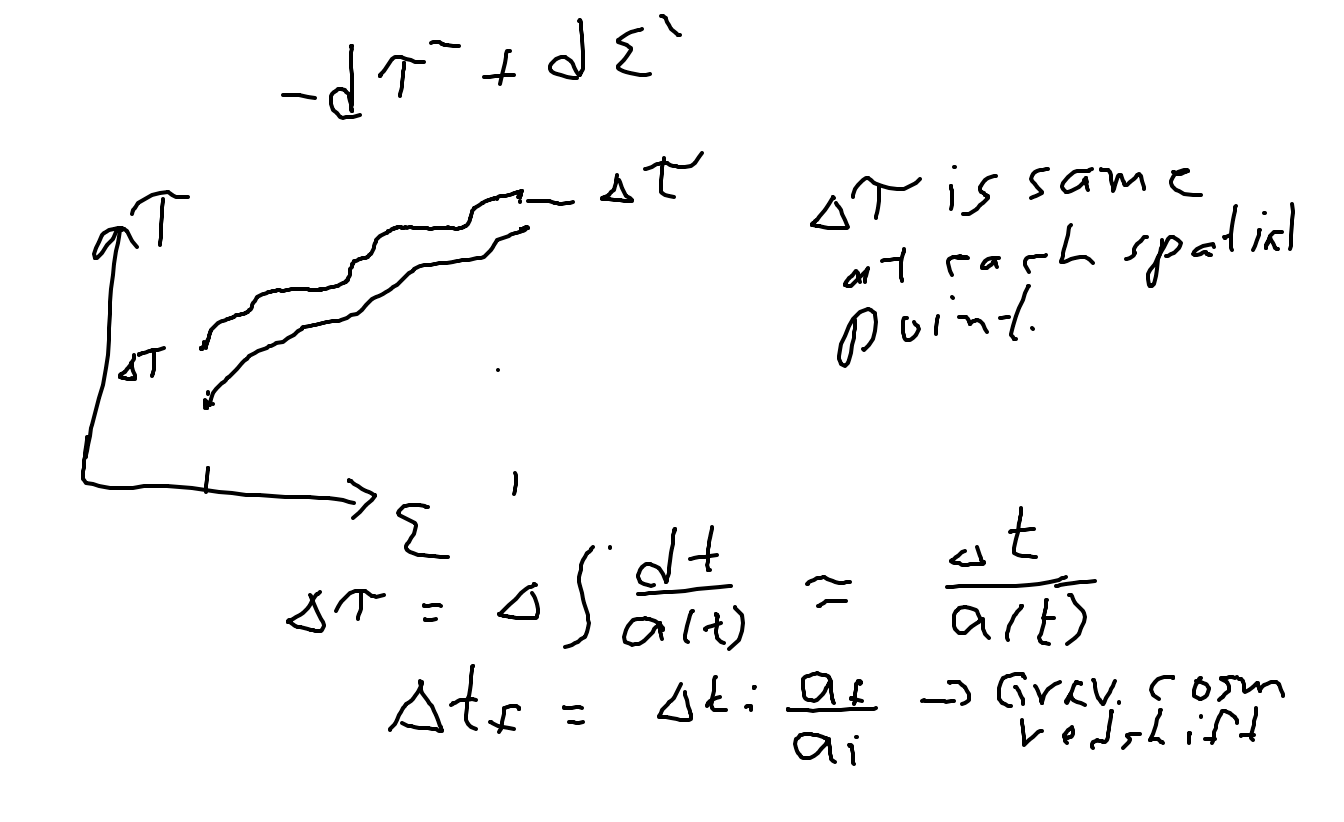 -dτ² + dΣ²
τ
Δτ
ΔT
Δτ is same
at each spatial
point.
Σ
Δτ = Δ∫ dt/a(t) ≈ Δt/a(t)
Δt_f = Δt_i a_f/a_i → Grav. cosm
redshift